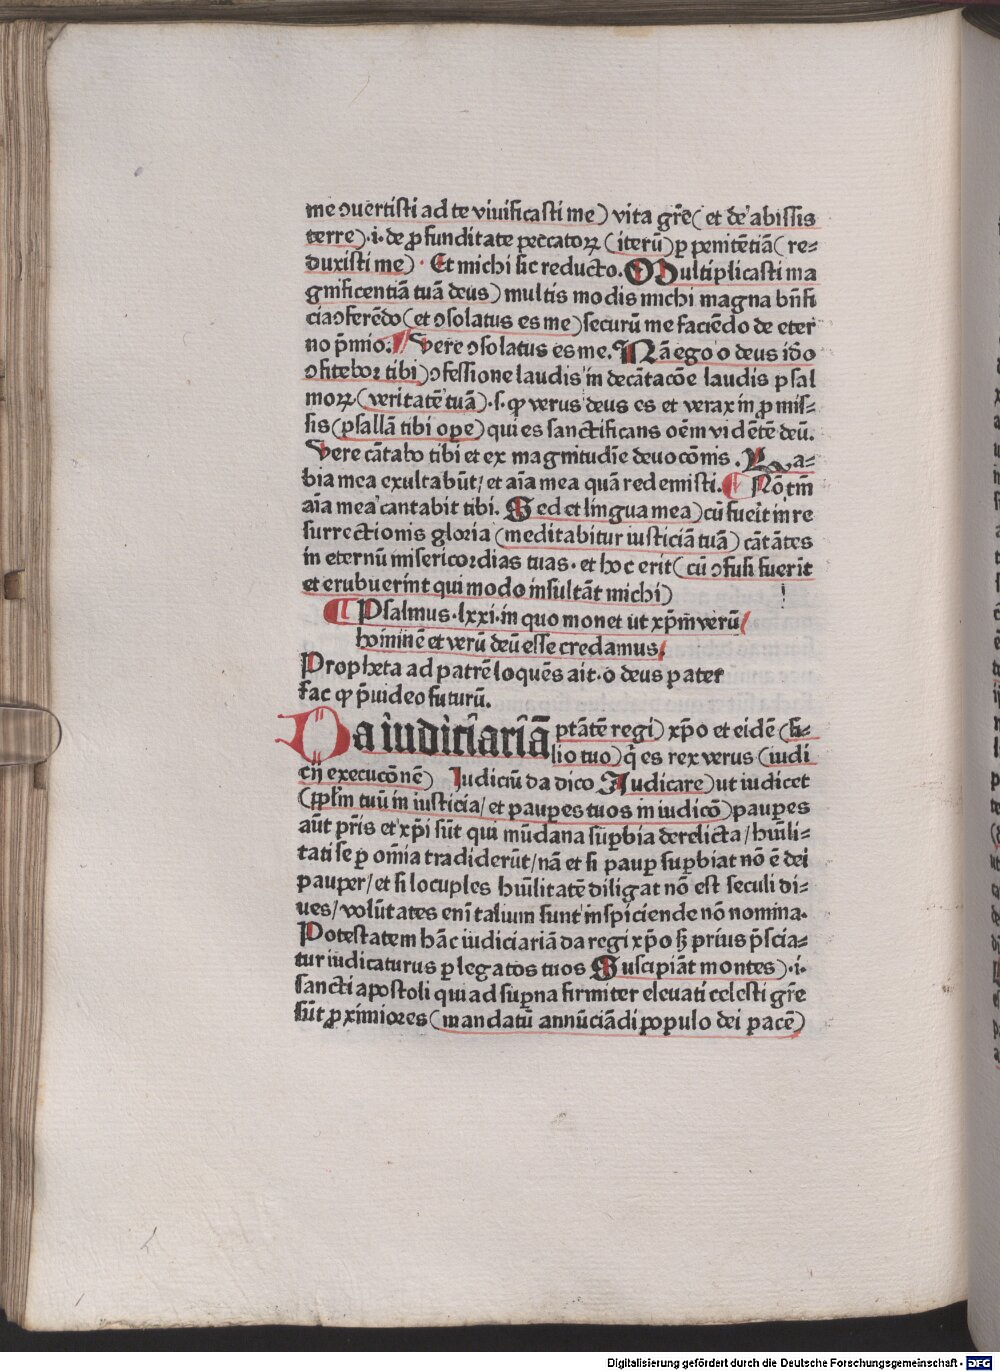 me ꝯuertisti ad te viuificasti me) vita gr̄e( et de abissis
terre).i. de ꝓfunditate peccatoꝝ (iterū) ꝑ penitētiā( re⸗
duxisti me) . Et michi sic reducto. Multiplicasti ma
gnificentiā tuā deus) multis modis michi magna bn̄fi
cia ꝯferēdo( et ꝯsolatus es me) securū me faciēdo de eter
no p̄mio. Vere ꝯsolatus es me. Nā ego o deus id̄o
ꝯfitebor tibi) ꝯfessione laudis in decātacōe laudis psal
moꝝ (veritatē tuā).s. ꝙ verus deus es et verax in ꝓmis⸗
sis (psallā tibi oꝑe) qui es sanctificans oēm vidētē deū.
Vere cātabo tibi et ex magnitudīe deuocōnis. La⸗
bia mea exultabūt/ et aīa mea quā redemisti. Nō tm̄
aīa mea cantabit tibi. Sed et lingua mea) cū fueīt in re
surrectionis gloria (meditabitur iusticiā tuā) cātātes
in eternū misericordias tuas. et hoc erit( cū ꝯfusi fuerīt
et erubuerint qui modo insultāt michi)
Psalmus.lxxi.in quo monet ut xp̄m verū
hominē et verū deū esse credamus.
Propheta ad patrē loquēs ait. o deus pater
fac ꝙ p̄uideo futurū.
Da iudiciariā ptātē regi) xp̄o et eidē (fi⸗
lio tuo) q̄ es rex verus (iudi
cij execucōnē) Iudiciū da dico Iudicare) ut iudicet
(ppl̄m tuū in iusticia/ et pauꝑes tuos in iudicō) pauꝑes
aūt pr̄is et xp̄i sūt qui mūdana suꝑbia derelicta/ hūīli⸗
tati se ꝑ om̄ia tradiderūt/ nā et si pauꝑ suꝑbiat nō ē dei
pauper/ et si locuples hūīlitatē diligat nō est seculi di⸗
ues/ volūtates enī talium sunt inspiciende nō nomina.
Potestatem hāc iudiciariā da regi xp̄o sꝫ prius p̄scia⸗
tur iudicaturus ꝑ legatos tuos Suscipiāt montes).i.
sancti apostoli qui ad suꝑna firmiter eleuati celesti gr̄e
sūt ꝓximiores (mandatū annūciādi populo dei pacē)
Digitalisierung gefördert durch die Deutsche Forschungsgemeinschaft - DFG